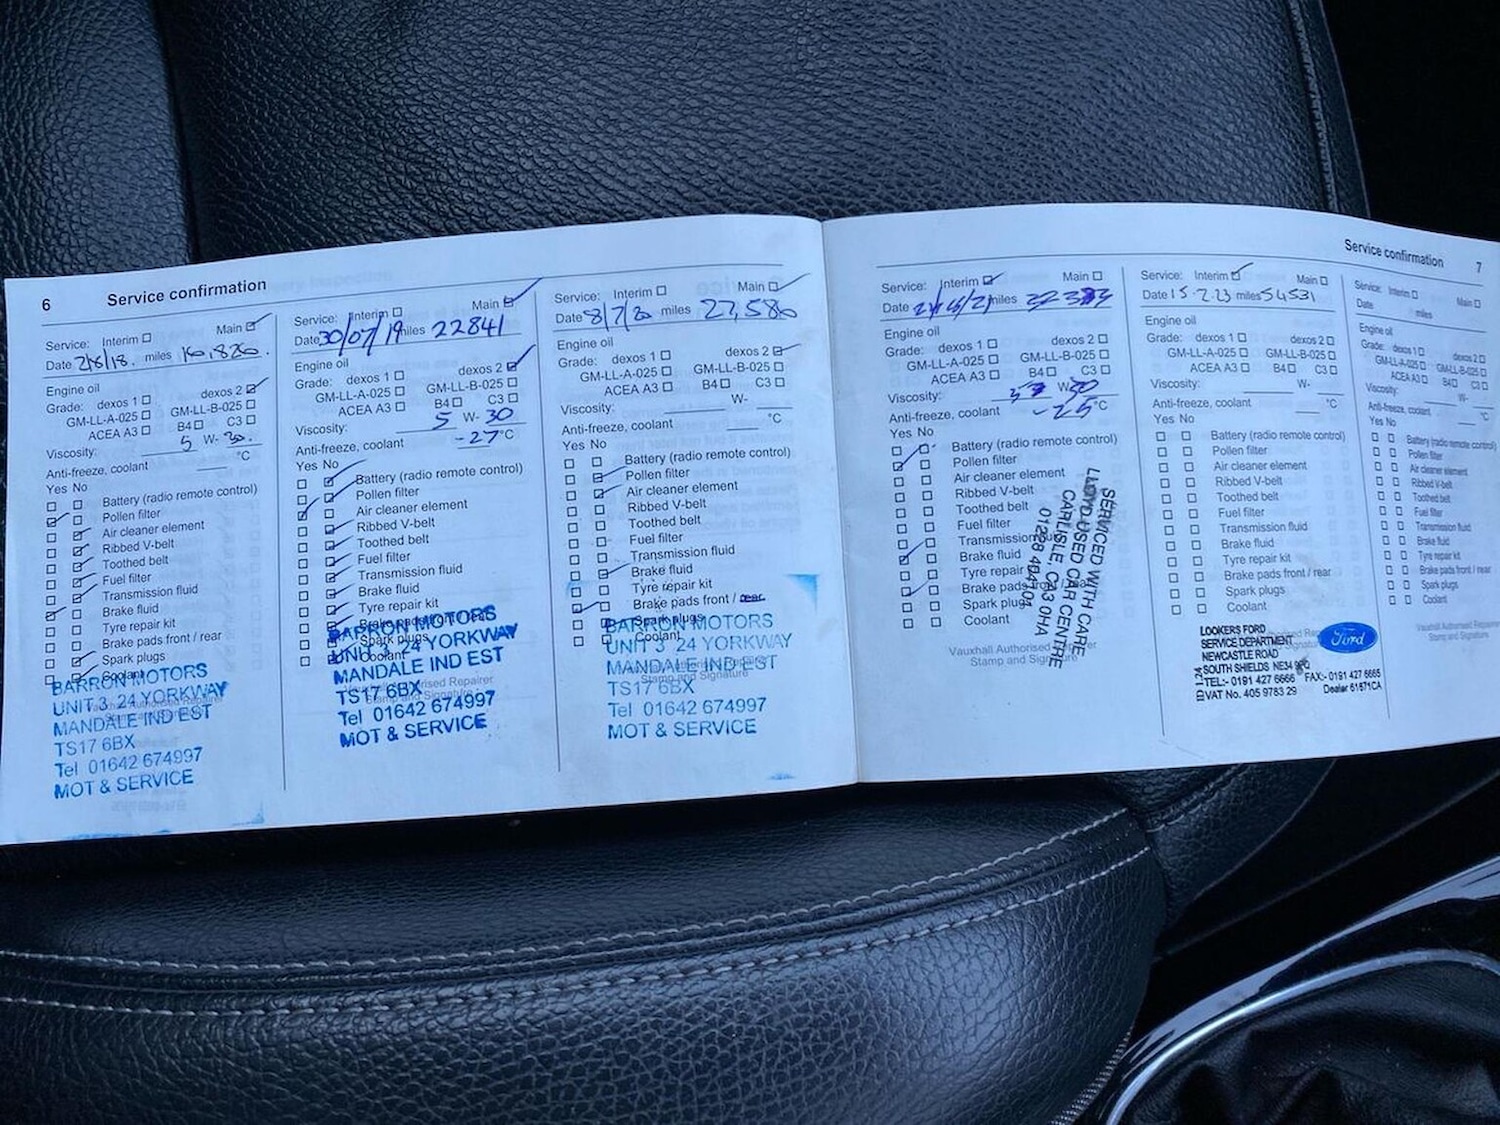 6 Service confirmation
Service: Interim Main
Date 2/8/18. miles
Engine oil
Grade: dexos 1 dexos 2
GM-LL-A-025 GM-LL-B-025
ACEA A3 B4 C3
Viscosity: 5 W- 30.
Anti-freeze, coolant °C
Yes No
Battery (radio remote control)
Pollen filter
Air cleaner element
Ribbed V-belt
Toothed belt
Fuel filter
Transmission fluid
Brake fluid
Tyre repair kit
Brake pads front / rear
Spark plugs
Coolant
BARRON MOTORS
UNIT 3 24 YORKWAY
MANDALE IND EST
TS17 6BX
Tel 01642 674997
MOT & SERVICE
Service: Interim Main
Date 30/07/19 miles 22841
Engine oil
Grade: dexos 1 dexos 2
GM-LL-A-025 GM-LL-B-025
ACEA A3 B4 C3
Viscosity: 5 W- 30
Anti-freeze, coolant -27 °C
Yes No
Battery (radio remote control)
Pollen filter
Air cleaner element
Ribbed V-belt
Toothed belt
Fuel filter
Transmission fluid
Brake fluid
Tyre repair kit
Brake pads front / rear
Spark plugs
Coolant
Vauxhall Authorised Repairer
Stamp and Signature
BARRON MOTORS
UNIT 3 24 YORKWAY
MANDALE IND EST
TS17 6BX
Tel 01642 674997
MOT & SERVICE
Service: Interim Main
Date 8/7/20 miles 27,580
Engine oil
Grade: dexos 1 dexos 2
GM-LL-A-025 GM-LL-B-025
ACEA A3 B4 C3
Viscosity: W-
Anti-freeze, coolant °C
Yes No
Battery (radio remote control)
Pollen filter
Air cleaner element
Ribbed V-belt
Toothed belt
Fuel filter
Transmission fluid
Brake fluid
Tyre repair kit
Brake pads front / rear
Spark plugs
Coolant
Stamp and Signature
BARRON MOTORS
UNIT 3 24 YORKWAY
MANDALE IND EST
TS17 6BX
Tel 01642 674997
MOT & SERVICE
Service confirmation 7
Service: Interim Main
Date miles
Engine oil
Grade: dexos 1 dexos 2
GM-LL-A-025 GM-LL-B-025
ACEA A3 B4 C3
Viscosity: W- 30
Anti-freeze, coolant -25 °C
Yes No
Battery (radio remote control)
Pollen filter
Air cleaner element
Ribbed V-belt
Toothed belt
Fuel filter
Transmission fluid
Brake fluid
Tyre repair kit
Brake pads front / rear
Spark plugs
Coolant
Vauxhall Authorised Repairer
Stamp and Signature
SERVICED WITH CARE
LLOYD USED CAR CENTRE
CARLISLE, CA3 0HA
01228 404101
Service: Interim Main
Date 15.2.23 miles 54531
Engine oil
Grade: dexos 1 dexos 2
GM-LL-A-025 GM-LL-B-025
ACEA A3 B4 C3
Viscosity: W-
Anti-freeze, coolant °C
Yes No
Battery (radio remote control)
Pollen filter
Air cleaner element
Ribbed V-belt
Toothed belt
Fuel filter
Transmission fluid
Brake fluid
Tyre repair kit
Brake pads front / rear
Spark plugs
Coolant
LOOKERS FORD
SERVICE DEPARTMENT
NEWCASTLE ROAD
SOUTH SHIELDS NE34 9PQ
TEL:- 0191 427 6666 FAX:- 0191 427 6665
VAT No. 405 9783 29 Dealer 61671CA
Ford
Service: Interim Main
Date miles
Engine oil
Grade: dexos 1 dexos 2
GM-LL-A-025 GM-LL-B-025
ACEA A3 B4 C3
Viscosity: W-
Anti-freeze, coolant °C
Yes No
Battery (radio remote control)
Pollen filter
Air cleaner element
Ribbed V-belt
Toothed belt
Fuel filter
Transmission fluid
Brake fluid
Tyre repair kit
Brake pads front / rear
Spark plugs
Coolant
Vauxhall Authorised Repairer
Stamp and Signature